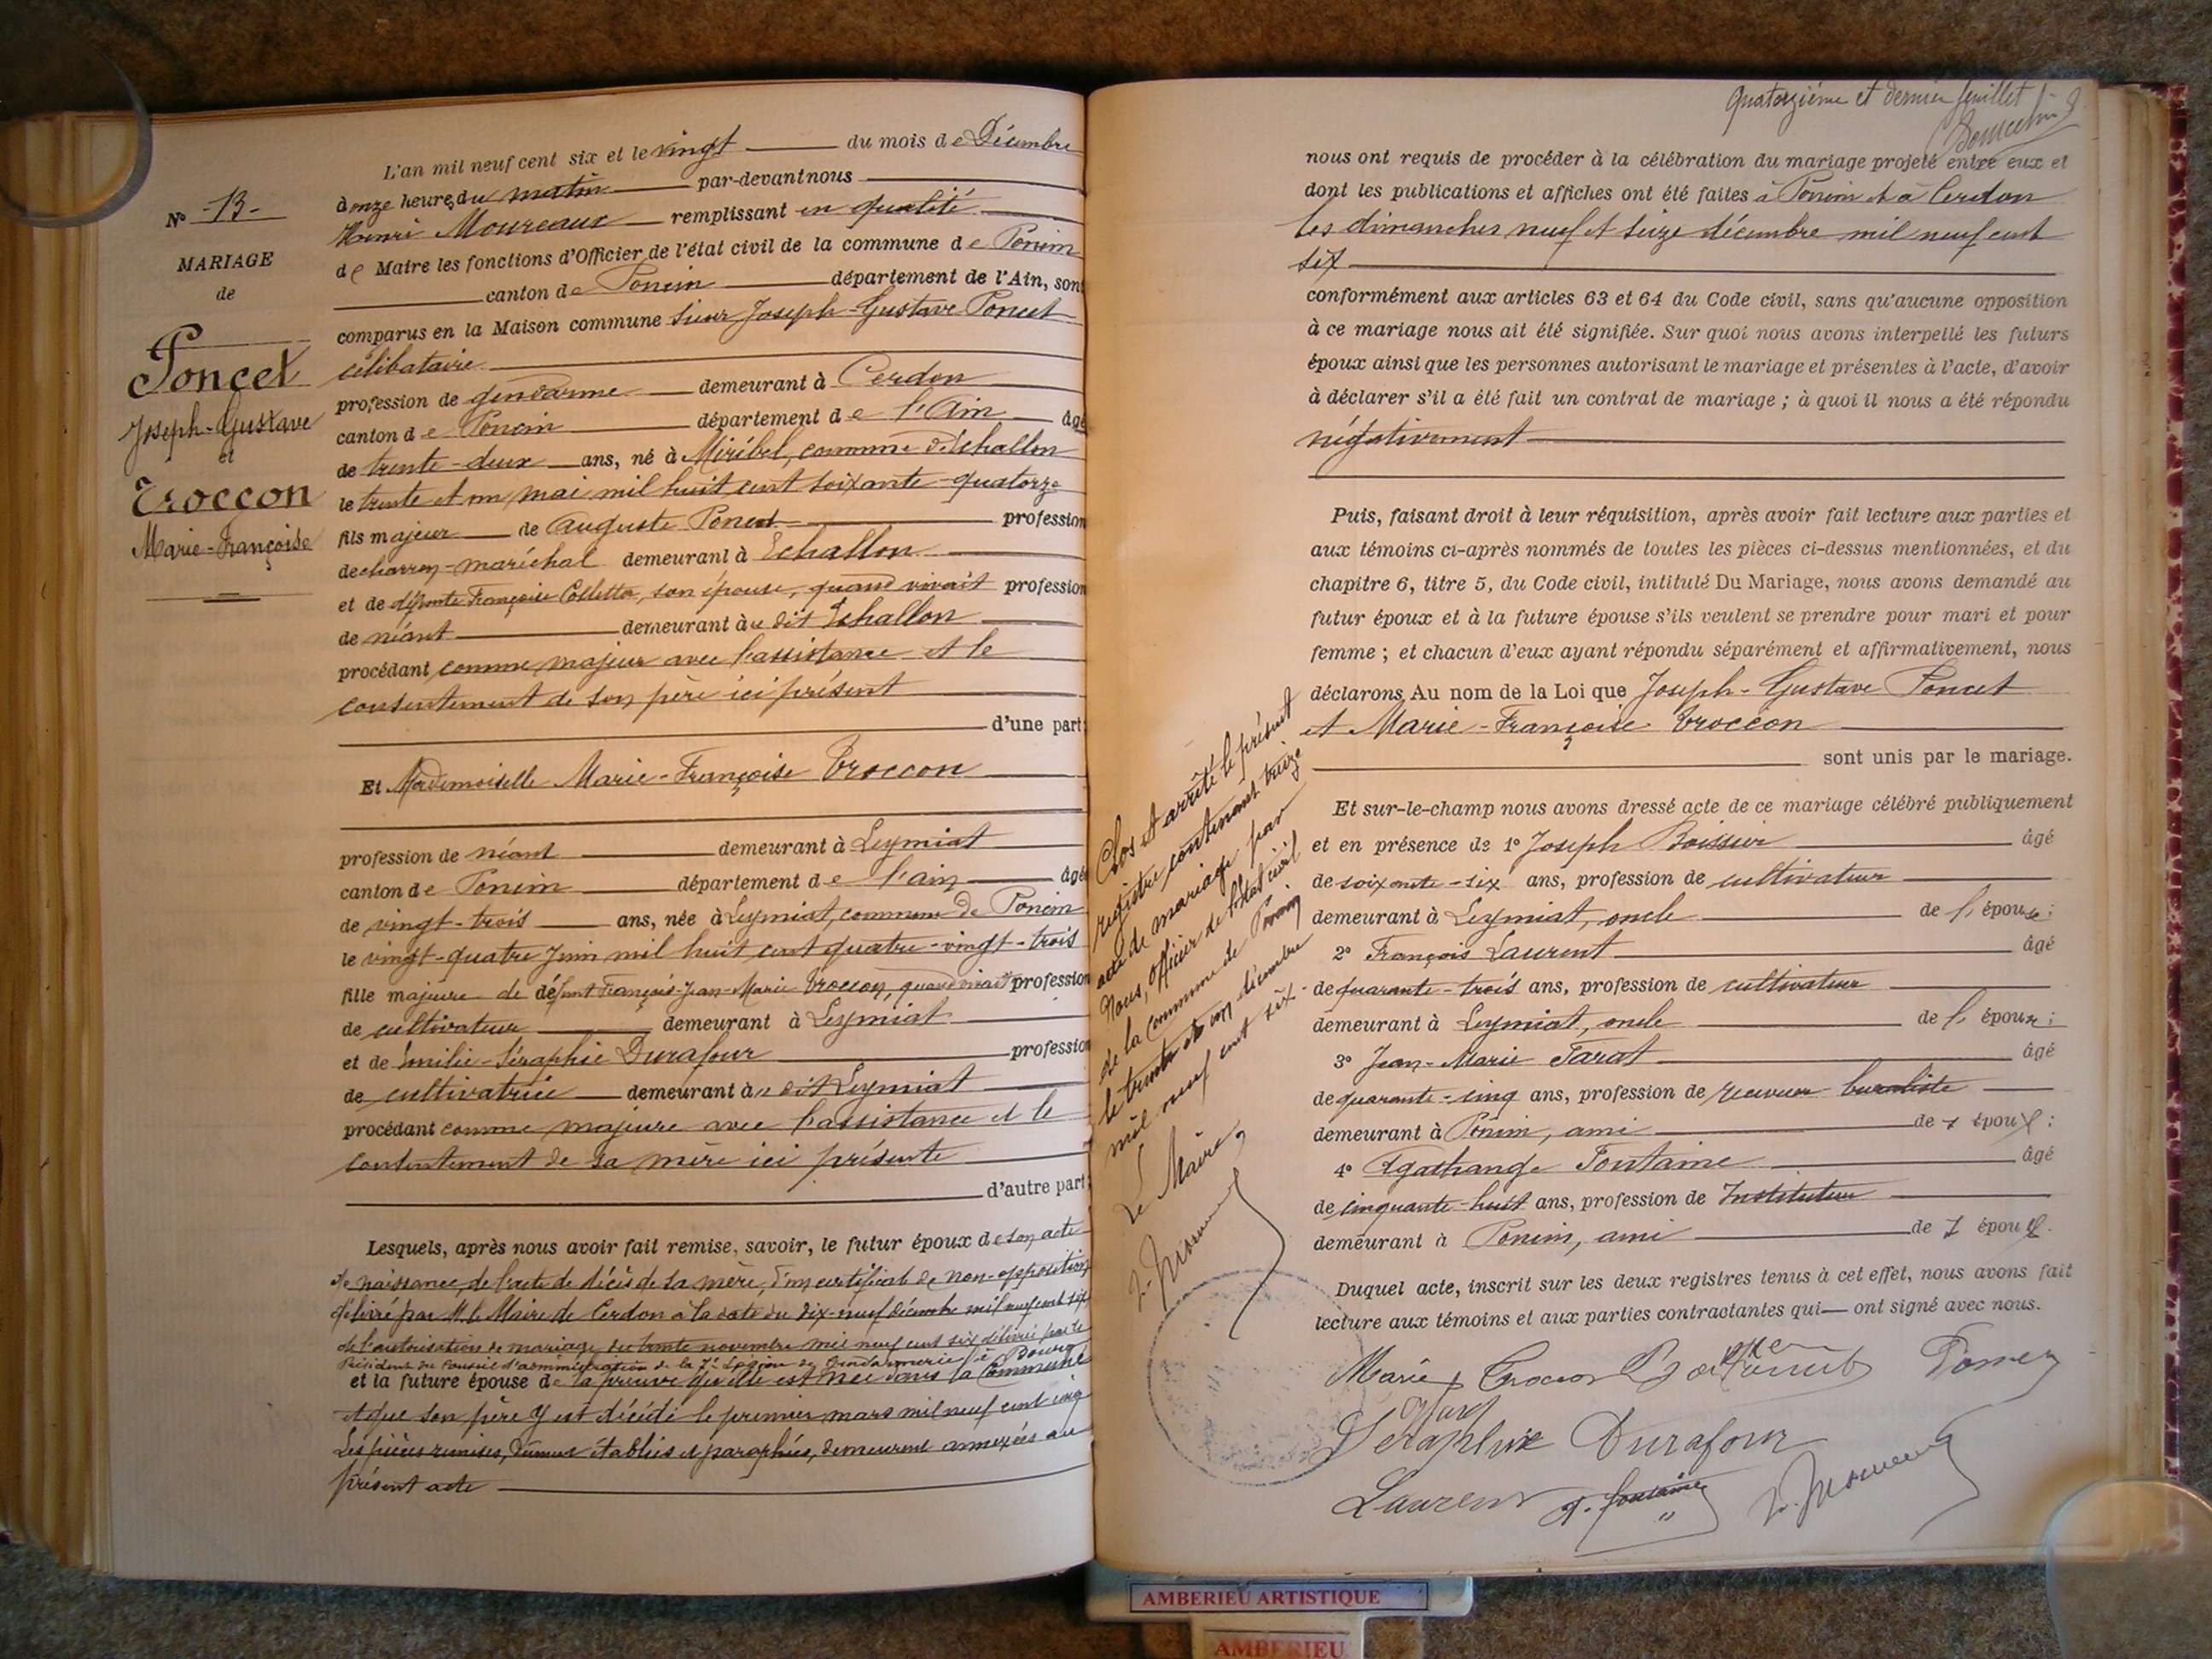 L'an mil neuf cent six et le vingt du mois de Décembre
à onze heures du matin par-devant nous
Henri Moureaux remplissant en qualité
de Maire les fonctions d'Officier de l'état civil de la commune de Poncin
canton de Poncin département de l'Ain, sont
comparus en la Maison commune sieur Joseph-Gustave Poncet
célibataire
profession de gendarme demeurant à Cerdon
canton de Poncin département de l'Ain âgé
de trente-deux ans, né à Miribel, commune d'Echallon
le trente et un mai mil huit cent soixante-quatorze
fils majeur de Auguste Poncet profession
de charron-maréchal demeurant à Echallon
et de défunte Françoise Collette, son épouse, quand vivait profession
de néant demeurant au dit Echallon
procédant comme majeur avec l'assistance et le
consentement de son père ici présent
d'une part
Nº -13-
MARIAGE
de
Poncet
Joseph-Gustave
et
Troccon
Marie-Françoise
Et Mademoiselle Marie-Françoise Troccon
profession de néant demeurant à Leymiat
canton de Poncin département de l'Ain âgée
de vingt-trois ans, née à Leymiat, commune de Poncin
le vingt-quatre Juin mil huit cent quatre-vingt-trois
fille majeure de défunt François-Jean-Marie Troccon, quand vivait profession
de cultivateur demeurant à Leymiat
et de Emilie-Séraphie Durafour profession
de cultivatrice demeurant au dit Leymiat
procédant comme majeure avec l'assistance et le
consentement de sa mère ici présente
d'autre part
Lesquels, après nous avoir fait remise, savoir, le futur époux de son acte
de naissance, de l'acte de décès de sa mère, d'un certificat de non-opposition
délivré par M. le Maire de Cerdon à la date du dix-neuf décembre mil neuf cent six
de l'autorisation de mariage du trente novembre mil neuf cent six délivrée par le
Président du Conseil d'administration de la 7e Légion de Gendarmerie à Bourg
et la future épouse de la preuve qu'elle est née dans la commune
et que son père y est décédé le premier mars mil neuf cent cinq
Les pièces remises, dûment établies et paraphées, demeurent annexées au
présent acte
Quatorzième et dernier feuillet
nous ont requis de procéder à la célébration du mariage projeté entre eux et
dont les publications et affiches ont été faites à Poncin et à Cerdon
les dimanches neuf et seize décembre mil neuf cent
six
conformément aux articles 63 et 64 du Code civil, sans qu'aucune opposition
à ce mariage nous ait été signifiée. Sur quoi nous avons interpellé les futurs
époux ainsi que les personnes autorisant le mariage et présentes à l'acte, d'avoir
à déclarer s'il a été fait un contrat de mariage ; à quoi il nous a été répondu
négativement
Puis, faisant droit à leur réquisition, après avoir fait lecture aux parties et
aux témoins ci-après nommés de toutes les pièces ci-dessus mentionnées, et du
chapitre 6, titre 5, du Code civil, intitulé Du Mariage, nous avons demandé au
futur époux et à la future épouse s'ils veulent se prendre pour mari et pour
femme ; et chacun d'eux ayant répondu séparément et affirmativement, nous
déclarons Au nom de la Loi que Joseph-Gustave Poncet
et Marie-Françoise Troccon
sont unis par le mariage.
Et sur-le-champ nous avons dressé acte de ce mariage célébré publiquement
et en présence de 1º Joseph Boissier âgé
de soixante-six ans, profession de cultivateur
demeurant à Leymiat, oncle de l'épouse ;
2º François Laurent âgé
de quarante-trois ans, profession de cultivateur
demeurant à Leymiat, oncle de l'épouse ;
3º Jean-Marie Tarat âgé
de quarante-cinq ans, profession de receveur buraliste
demeurant à Poncin, ami de l'époux ;
4º Agathange Fontaine âgé
de cinquante-huit ans, profession de Instituteur
demeurant à Poncin, ami de l'époux.
Duquel acte, inscrit sur les deux registres tenus à cet effet, nous avons fait
lecture aux témoins et aux parties contractantes qui ont signé avec nous.
Marie Troccon Poncet
Séraphie Durafour
Laurent A. Fontaine
Clos et arrêté le présent
registre contenant treize
actes de mariage par
Nous, Officier de l'état civil
de la Commune de Poncin
le trente et un décembre
mil neuf cent six.
Le Maire,
AMBERIEU ARTISTIQUE
AMBERIEU